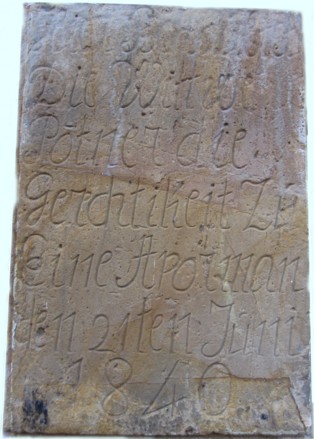 Die Witwe
Pötner die
Gerchtikeit Zu
Eine Apotman
den 21ten Juni
1840